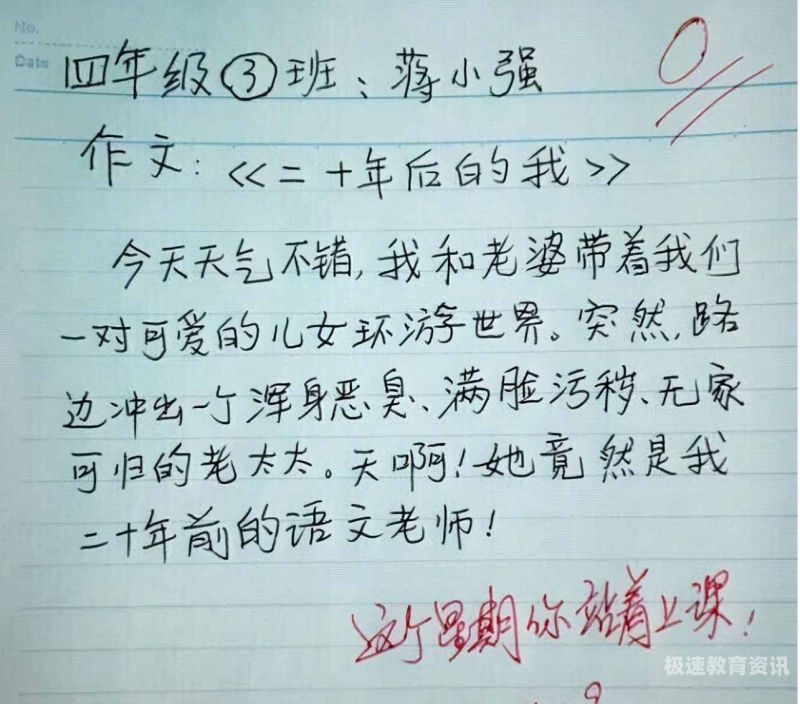 No.
Date
四年级③班：蒋小强
0
作文：《二十年后的我》
今天天气不错，我和老婆带着我们
一对可爱的儿女环游世界。突然，路
边冲出一个浑身恶臭、满脸污秽、无家
可归的老太太。天啊！她竟然是我
二十年前的语文老师！
这个星期你站着上课！
极速教育资讯